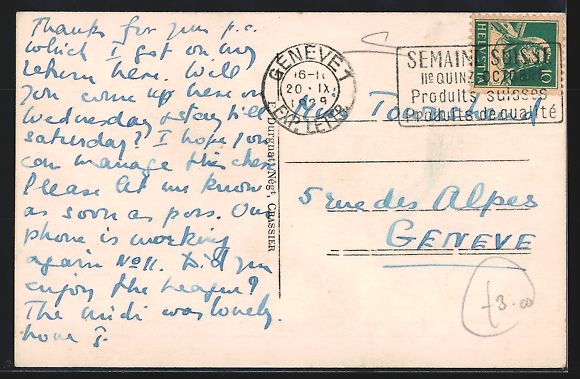 Thanks for your p.c.
which I got on my
return here. Will
you come up here on
Wednesday & stay till
Saturday? I hope you
can manage this chere.
Please let me know
as soon as poss. Our
phone is working
again No 11. Did you
enjoy the League?
The midi was lovely.
love
E. Durgnat, Négt, CRASSIER
GENEVE 1
16-17
20·IX·
1929
EXP. LETTR.
SEMAINE SUISSE
IIe QUINZ. OCTOBRE
Produits suisses
Produits de qualité
HELVETIA
10
5 rue des Alpes
GENEVE
£3.00